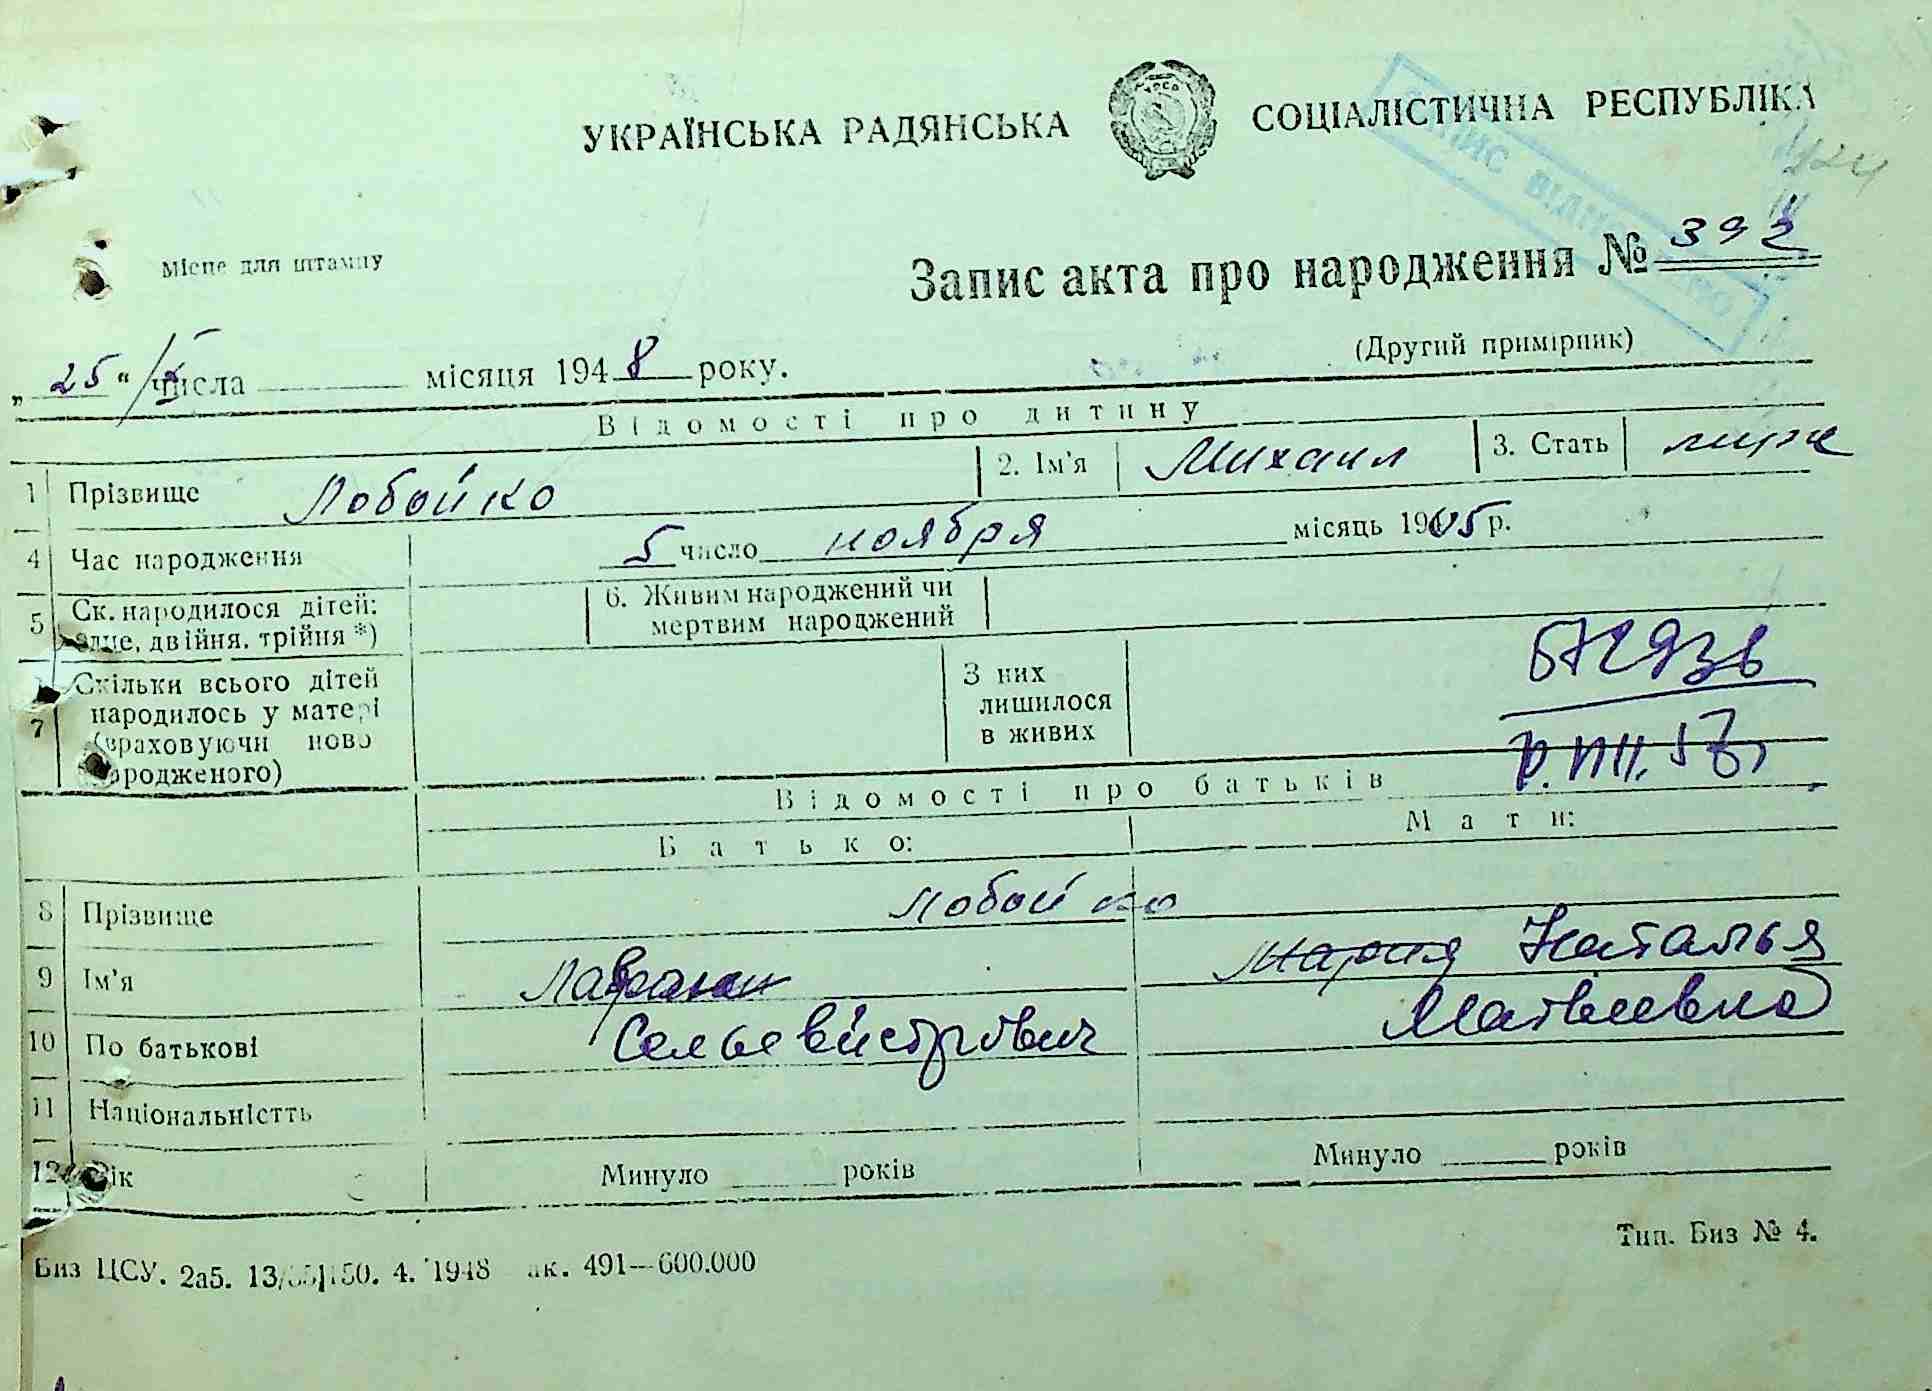 УКРАЇНСЬКА РАДЯНСЬКА СОЦІАЛІСТИЧНА РЕСПУБЛІКА
Місце для штампу
Запис акта про народження № 392
(Другий примірник)
„ 25 “ числа місяця 1948 року.
Відомості про дитину
1 Прізвище Лобойко 2. Ім'я Михаил 3. Стать муж
4 Час народження 5 число ноября місяць 1905 р.
5 Ск. народилося дітей: одне, двійня, трійня *)
6. Живим народжений чи мертвим народжений
7 Скільки всього дітей народилось у матері (враховуючи ново народженого)
З них лишилося в живих
Відомості про батьків
Батько: Мати:
8 Прізвище Лобойко
9 Ім'я Мария Наталья
10 По батькові Матвеевна
11 Національністть
12 Вік Минуло років Минуло років
Биз ЦСУ. 2а5. 150. 4. 1948 491—600.000
Тип. Биз № 4.